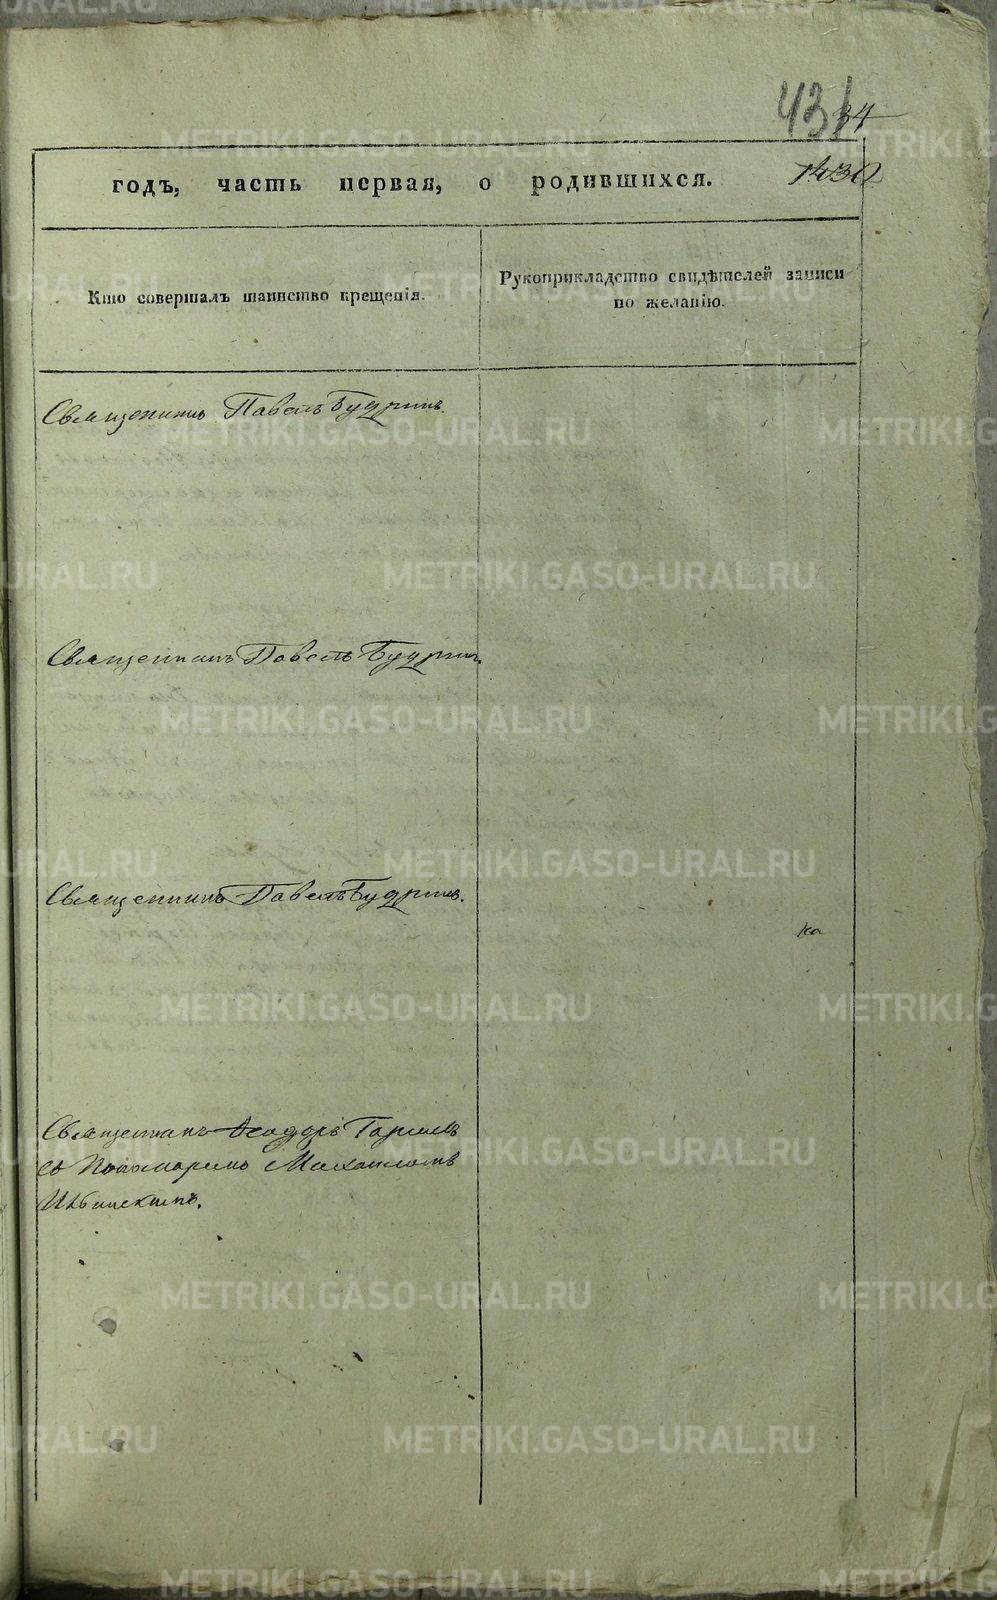 431
34
1430
годъ, часть первая, о родившихся.
Кто совершалъ таинство крещенія.
Рукоприкладство свидѣтелей записи
по желанію.
Священникъ Павелъ Будринъ.
Священникъ Павелъ Будринъ.
Священникъ Павелъ Будринъ.
ка
Священникъ Ѳеодоръ
съ Пономаремъ Михаиломъ
METRIKI.GASO-URAL.RU